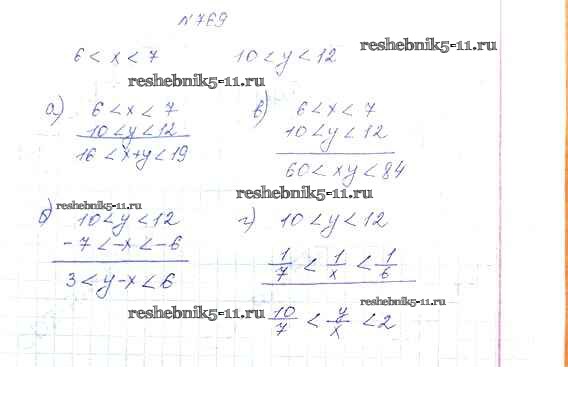 №769
6 < x < 7    10 < y < 12
reshebnik5-11.ru
reshebnik5-11.ru
а) 6 < x < 7
10 < y < 12
16 < x+y < 19
в) 6 < x < 7
10 < y < 12
60 < xy < 84
reshebnik5-11.ru
reshebnik5-11.ru
б) 10 < y < 12
-7 < -x < -6
3 < y-x < 6
г) 10 < y < 12
1/7 < 1/x < 1/6
10/7 < y/x < 2
reshebnik5-11.ru
reshebnik5-11.ru